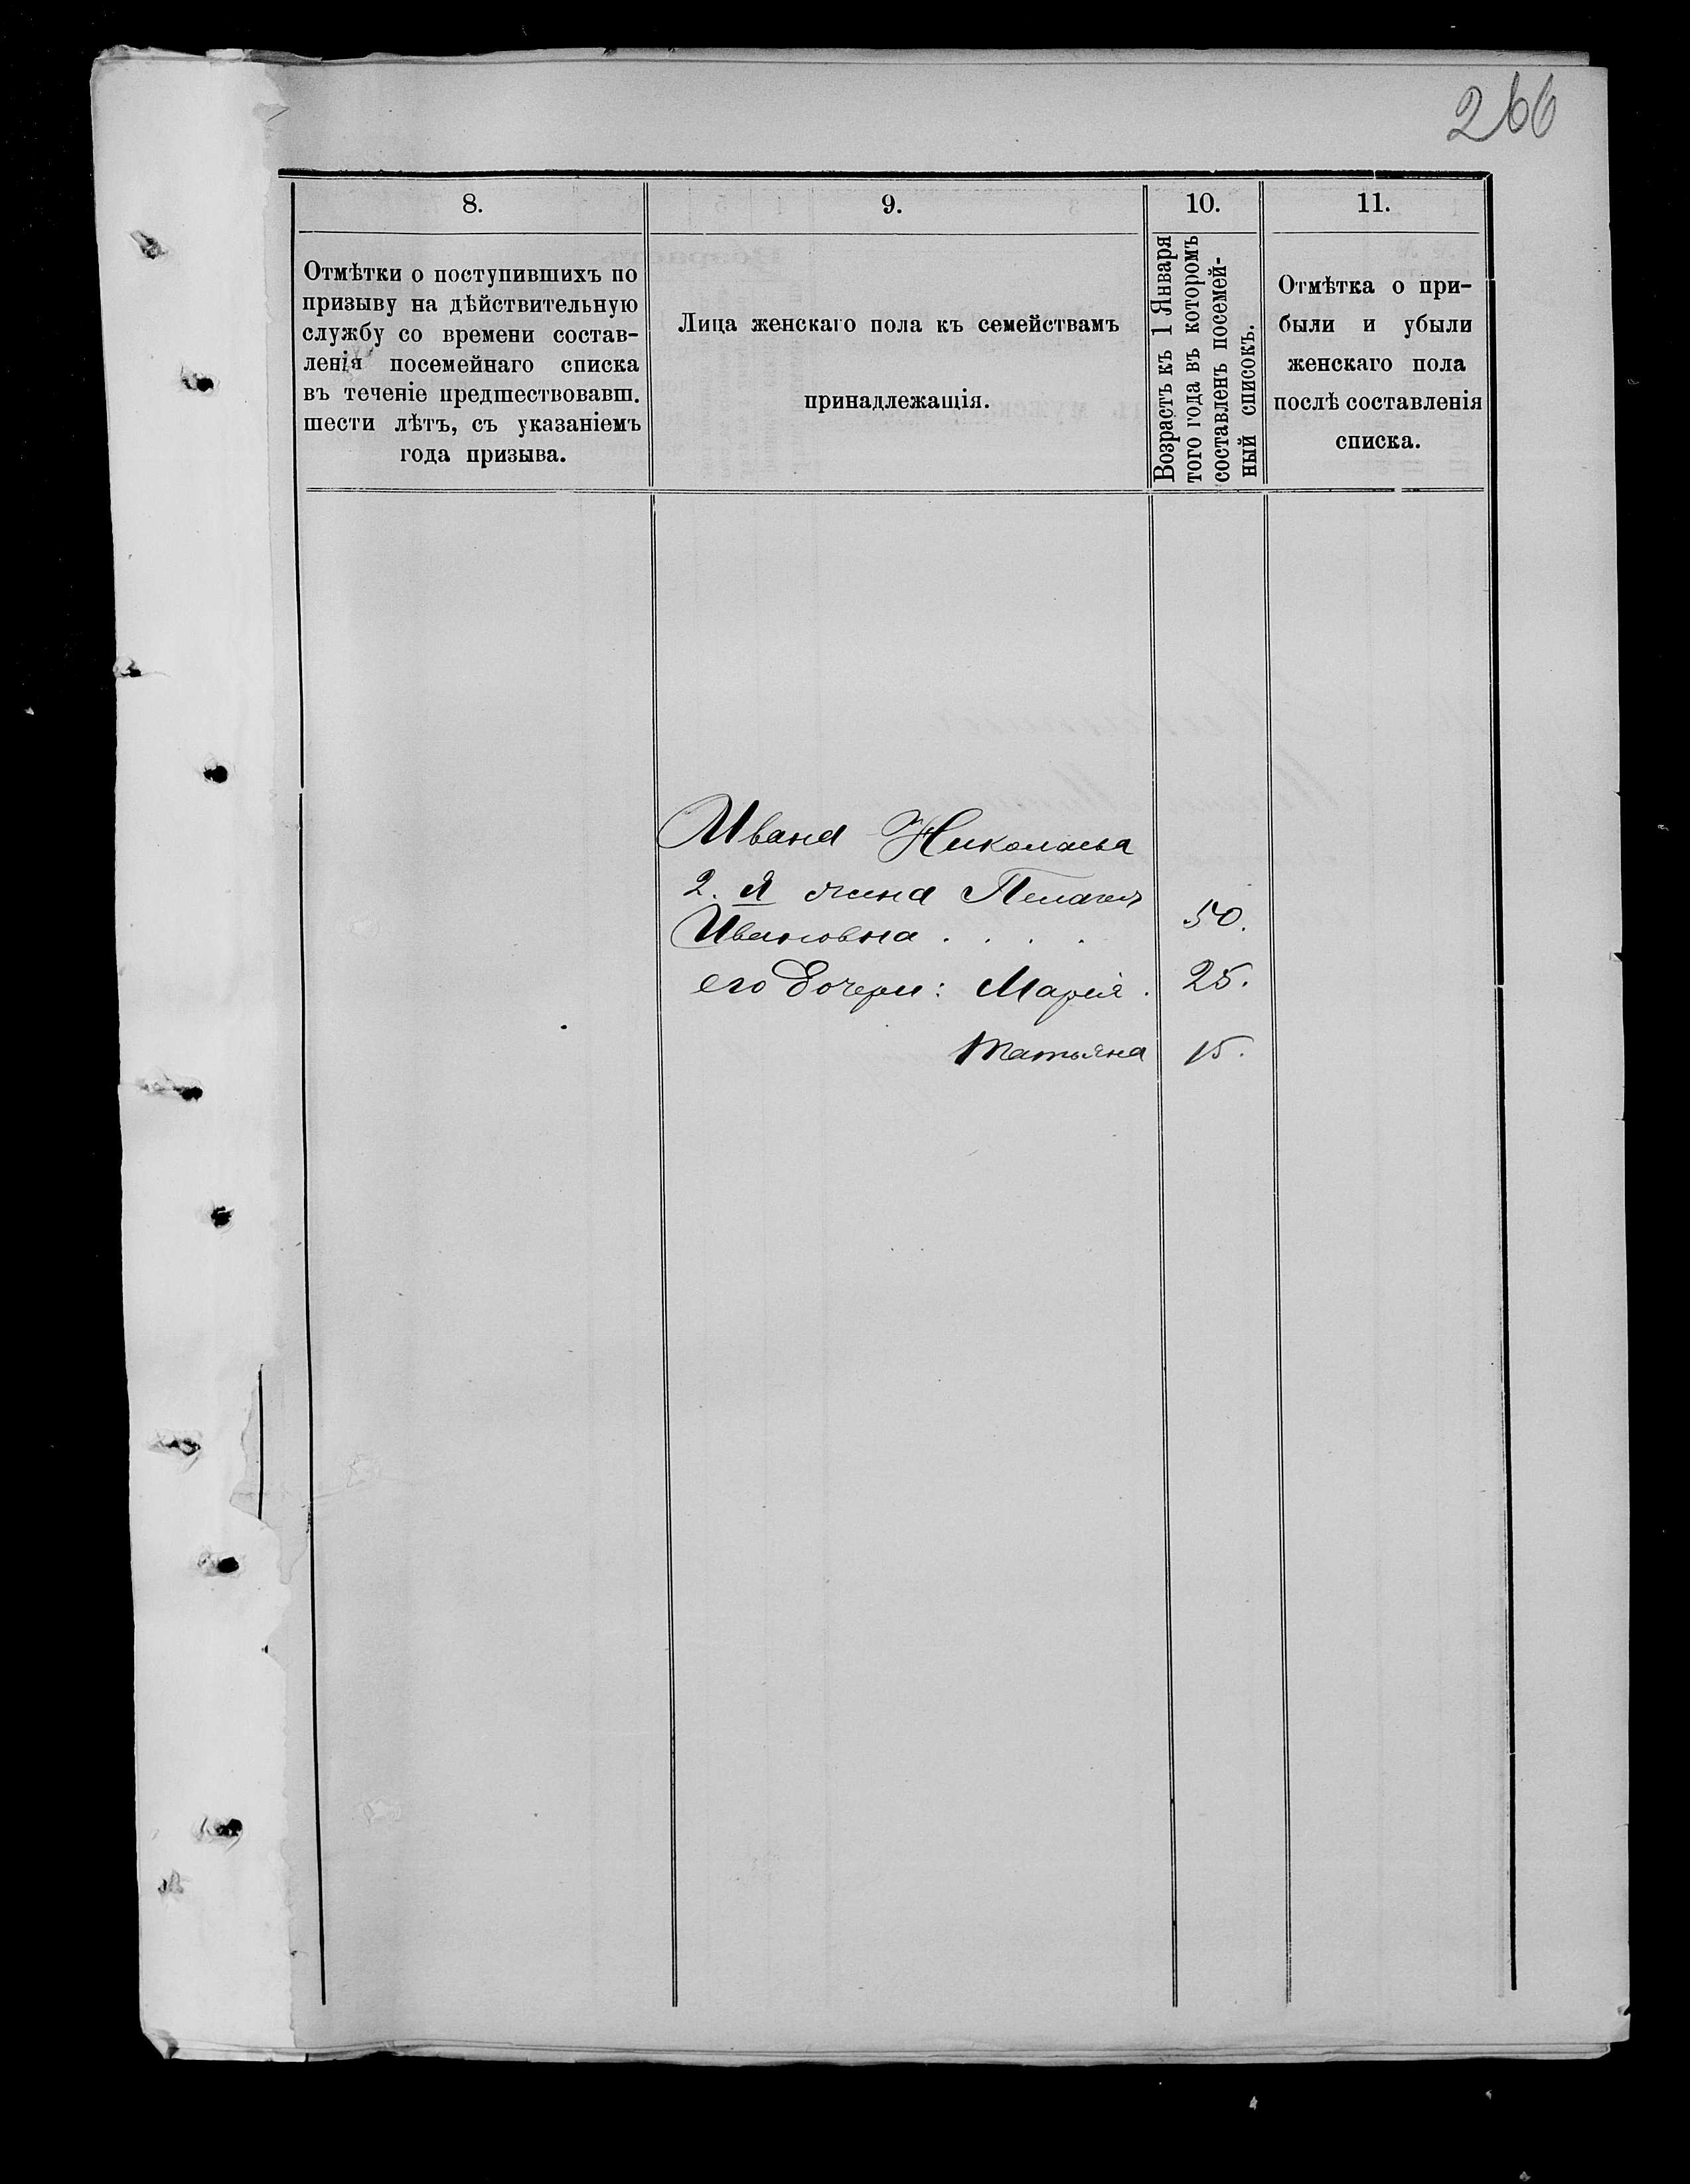 266
8.
9.
10.
11.
Отмѣтки о поступившихъ по
призыву на дѣйствительную
службу со времени состав-
ленія посемейнаго списка
въ теченіе предшествовавш.
шести лѣтъ, съ указаніемъ
года призыва.
Лица женскаго пола къ семействамъ
принадлежащія.
Возрастъ къ 1 Января
того года въ которомъ
составленъ посемей-
ный списокъ.
Отмѣтка о при-
были и убыли
женскаго пола
послѣ составленія
списка.
Ивана Николаева
2. я жена Пелагея
Ивановна . . . . 50.
его дочери: Марія . 25.
Татьяна 15.